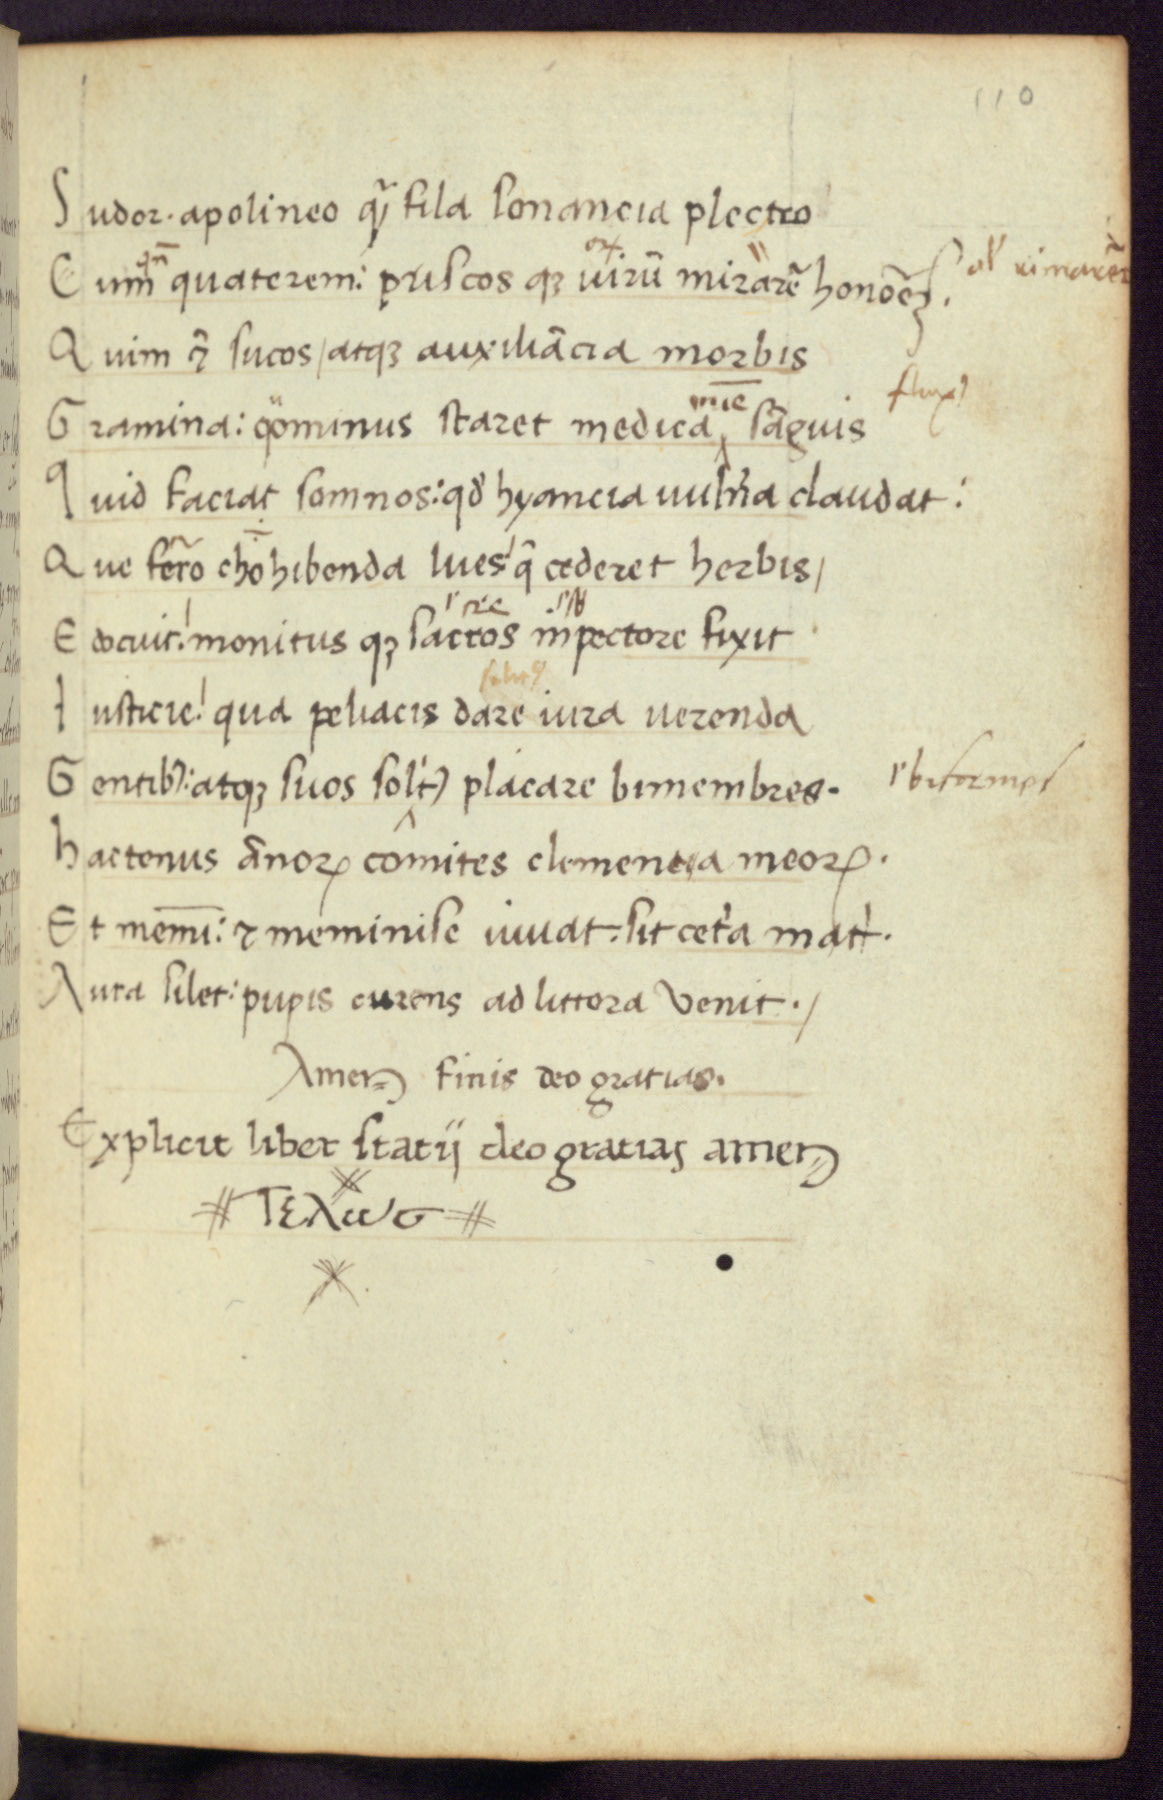 110
Sudor. apolineo q̃ fila sonancia plectro
Cum quaterem: priscos qꝫ uirũ mirarẽ honoẽs.
al' rimarẽr
Quim ⁊ sucos / atqꝫ auxiliãcia morbis
Gramina: q̈ominus staret medicã sãguis
Quid faciat somnos: qđ hyancia uuln̾a claudat:
Que fer̃o chohibenda lues! q̃ cederet herbis /
Edocuit! monitus qꝫ sacros in pectore fixit
Iusticie! qua peliacis dare iura uerenda
Gentibꝰ: atqꝫ suos solitꝰ placare bimembres.
biformes
hactenus ãnoꝝ comites clementia meoꝝ.
Et memĩ: ⁊ meminise iuuat. sit cet̾a mat̾.
Aura silet: pupis currens ad littora venit. /
Amen finis deo gratias.
Explicit liber statij deo gratias amen
Τελωσ